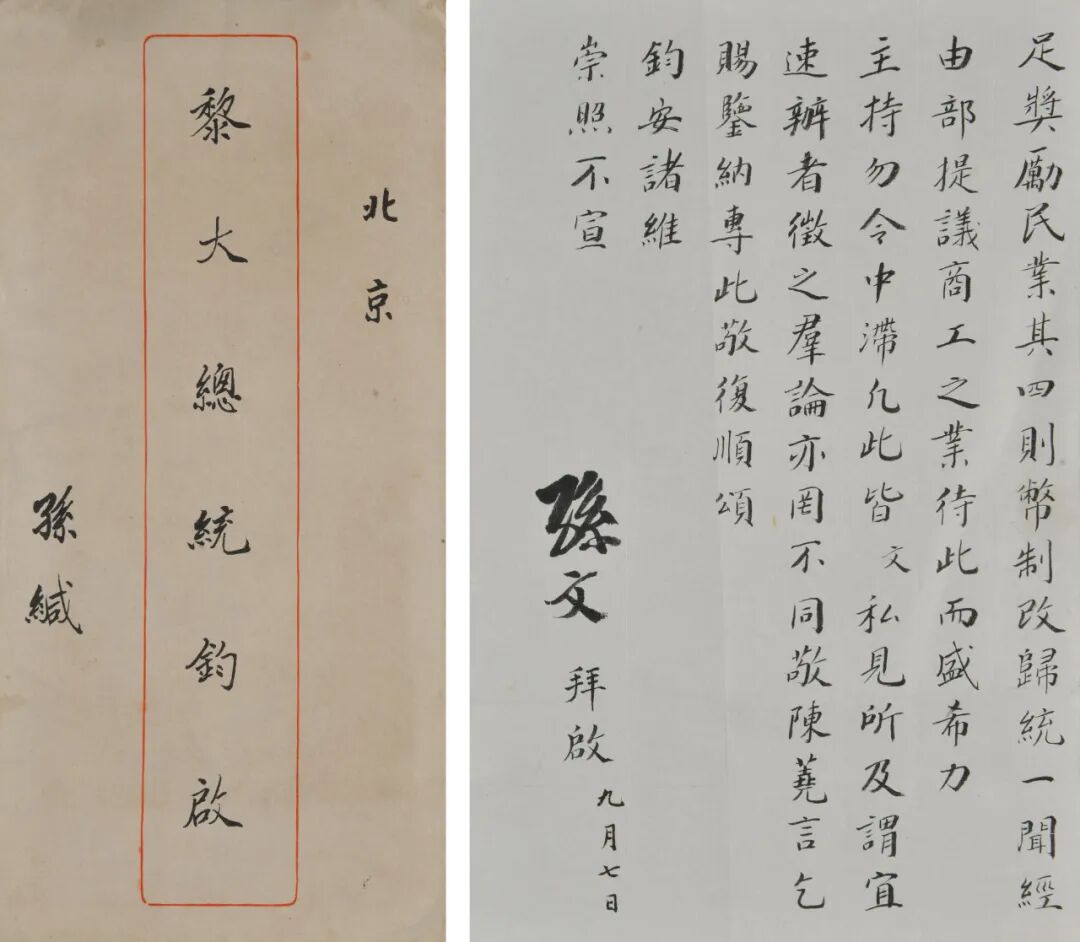 北京
黎大總統鈞啟
孫緘
足獎勵民業其四則幣制改歸統一聞經
由部提議商工之業待此而盛希力
主持勿令中滯凡此皆文私見所及謂宜
速辦者徵之羣論亦罔不同敬陳蕘言乞
賜鑒納專此敬復順頌
鈞安諸維
崇照不宣
孫文 拜啟
九月七日